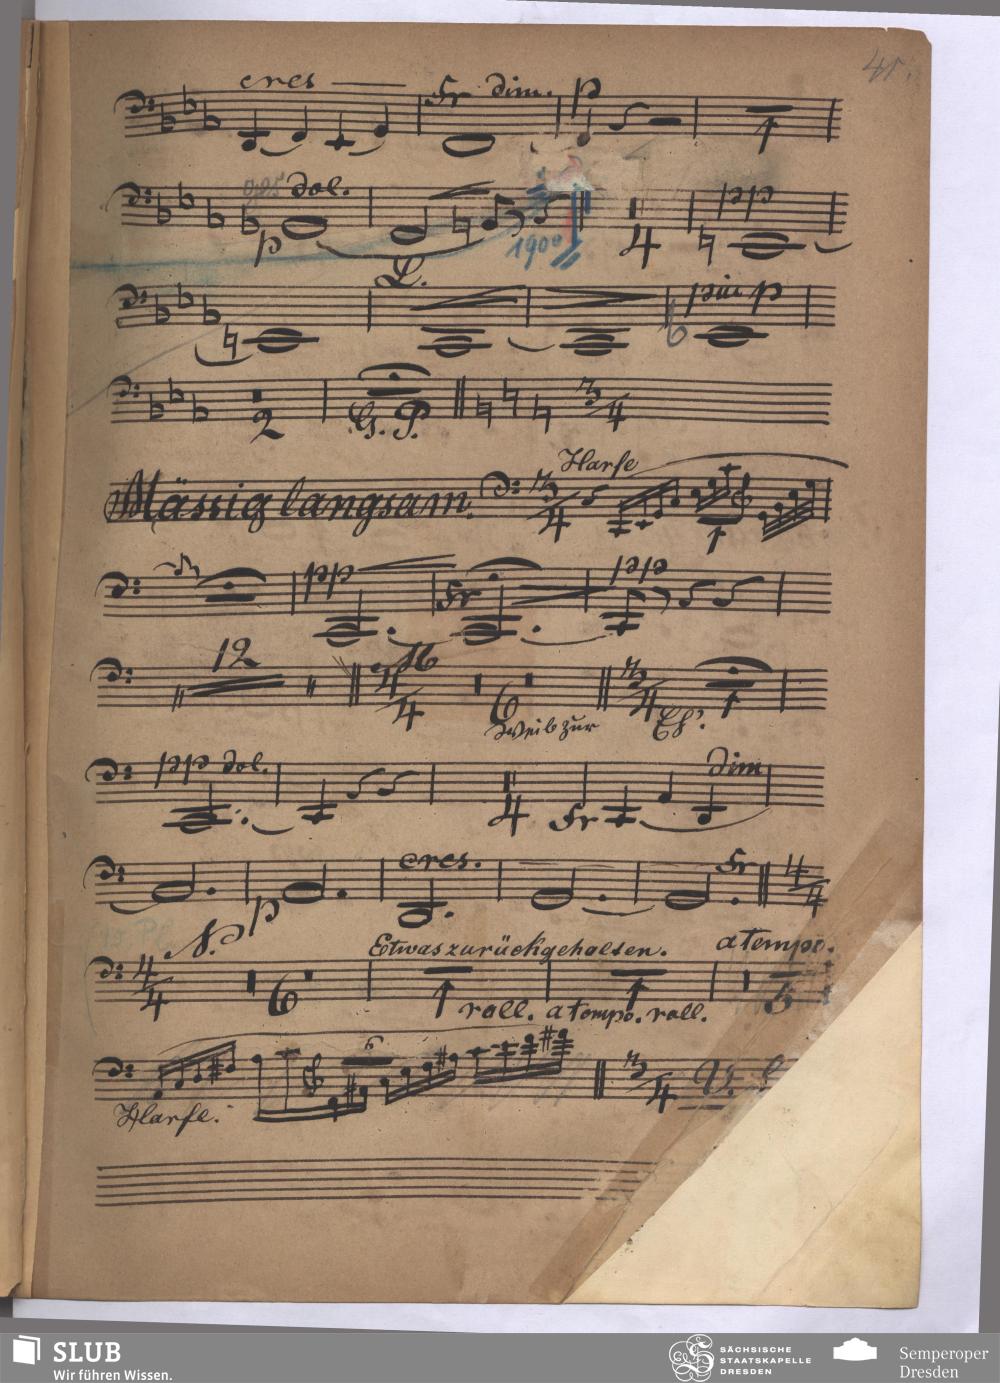 41.
cres
Fr dim. p
dol.
p
1900
4
pp
L.
più p
6
2
G. P.
3/4
Mässig langsam.
3/4
Harfe
pp
Fr
ppp
12
4/4
6
Weib zur
3/4
Eh'.
pp dol.
4
Fr
dim
p
cres.
Fr
4/4
4/4
6
Etwas zurückgehalten.
a tempo.
rall. a tempo. rall.
5
Harfe.
6
3/4
V.
SLUB
Wir führen Wissen.
SÄCHSISCHE
STAATSKAPELLE
DRESDEN
Semperoper
Dresden